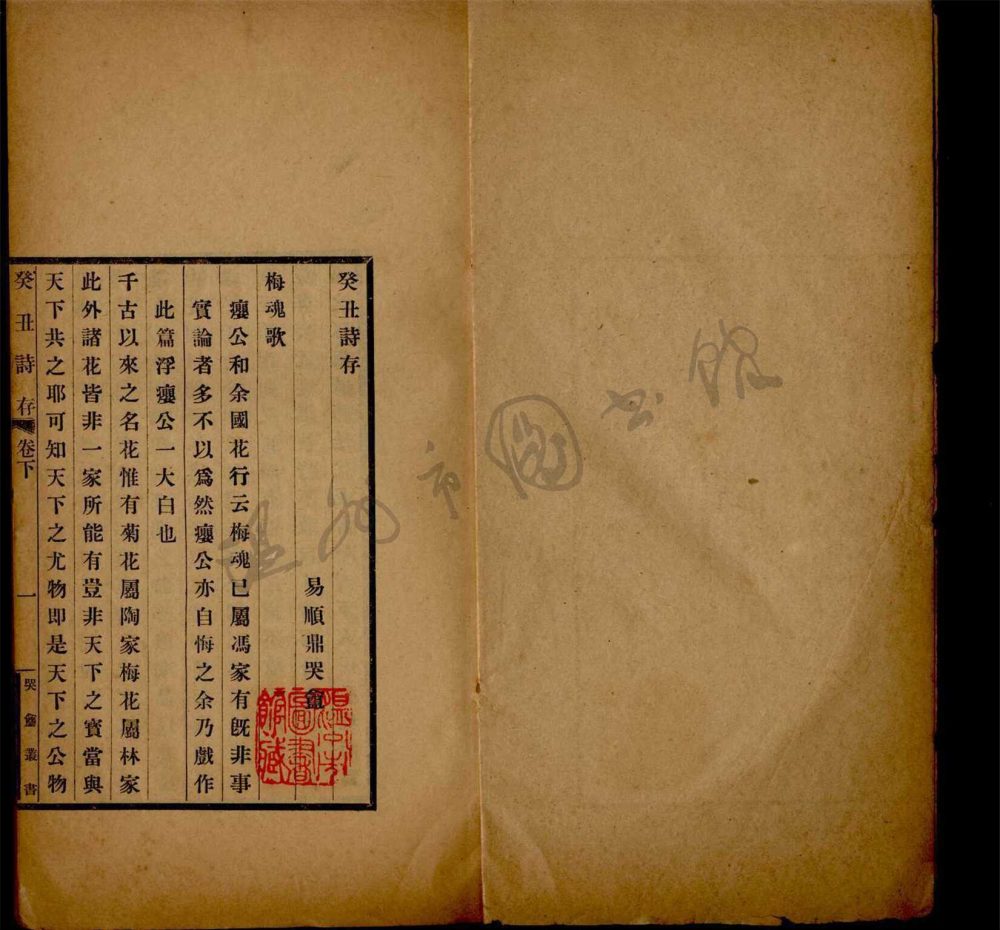 癸丑詩存
易順鼎哭盦
梅魂歌
癭公和余國花行云梅魂已屬馮家有既非事
實論者多不以爲然癭公亦自悔之余乃戲作
此篇浮癭公一大白也
千古以來之名花惟有菊花屬陶家梅花屬林家
此外諸花皆非一家所能有豈非天下之寶當與
天下共之耶可知天下之尤物即是天下之公物
癸丑詩存
卷下
一
哭盦叢書
溫州市圖書館藏
溫州市圖书館